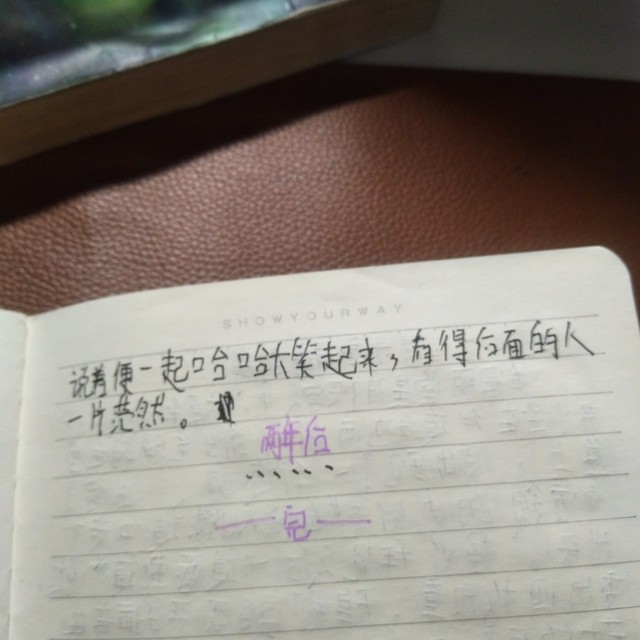 SHOWYOURWAY
说着便一起哈哈大笑起来，看得后面的人
一片茫然。
醉后
……